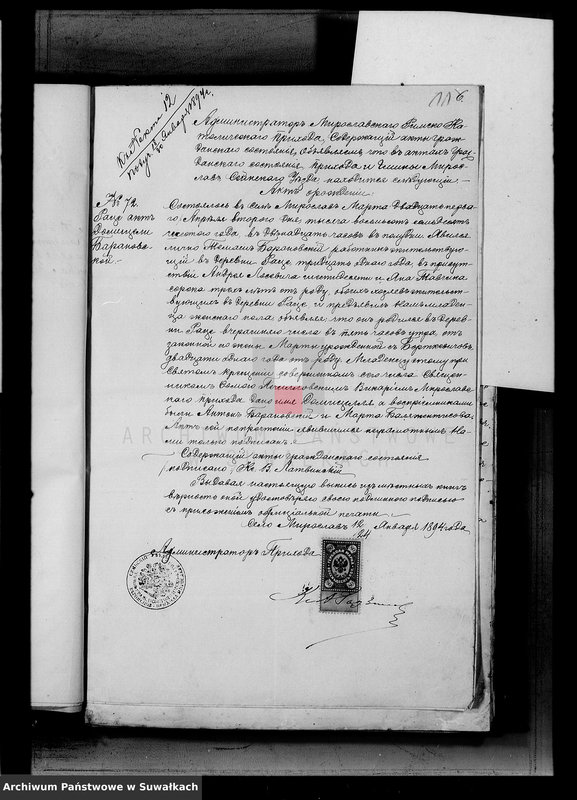 116
Кн. Керта 12
Января 1894 г.
Администраторъ Мирославскаго Римско Ка
толическаго прихода, Содержащій акты граж
данскаго состоянія, Объявляетъ что въ актахъ Граж
данскаго состоянія прихода и Гмины Миро
славъ Сейнскаго Уѣзда находится слѣдующій
Актъ о рожденіи
№ 72.
актъ
Барановс
кой
Состоялось въ селѣ Мирославѣ Марта двадцать перва
го Апрѣля втораго дня, тысяча восемьсотъ семьдесятъ
шестого года, въ двѣнадцать часовъ въ полудни Явился
лично Барановскій работникъ жительствую
щій въ деревнѣ тридцать одного года, въ присут
ствіи Андрея и Яна
сорока трехъ лѣтъ отъ роду, обоихъ хозяевъ жительст
вующихъ въ деревни и предъявилъ намъ младен
ца женскаго пола объявляя что онъ родился въ дерев
ни вчерашняго числа въ пять часовъ утра отъ
законной его жены Марты урожденной
двадцати одного года отъ роду. Младенцу этому при
Святомъ крещеніи совершенномъ сего числа Священ
никомъ Викаріемъ Мирослав
скаго прихода дано имя а воспріемниками
были Антонъ Барановскій и Марта
Актъ сей по прочтеніи явившимся неграмотнымъ На
ми только подписанъ.
Содержащій акты гражданскаго состоянія
(подписалъ) Кс. В. Латвинскій
Выдавая настоящую выпись изъ книгъ
вѣрность оной удостовѣряю своею подписью
съ приложеніемъ оффиціальной печати.
Село Мирославъ 12/24 Января 1894 года
Администраторъ Прихода
ARCHIWUM PAŃSTWOWE
Archiwum Państwowe w Suwałkach